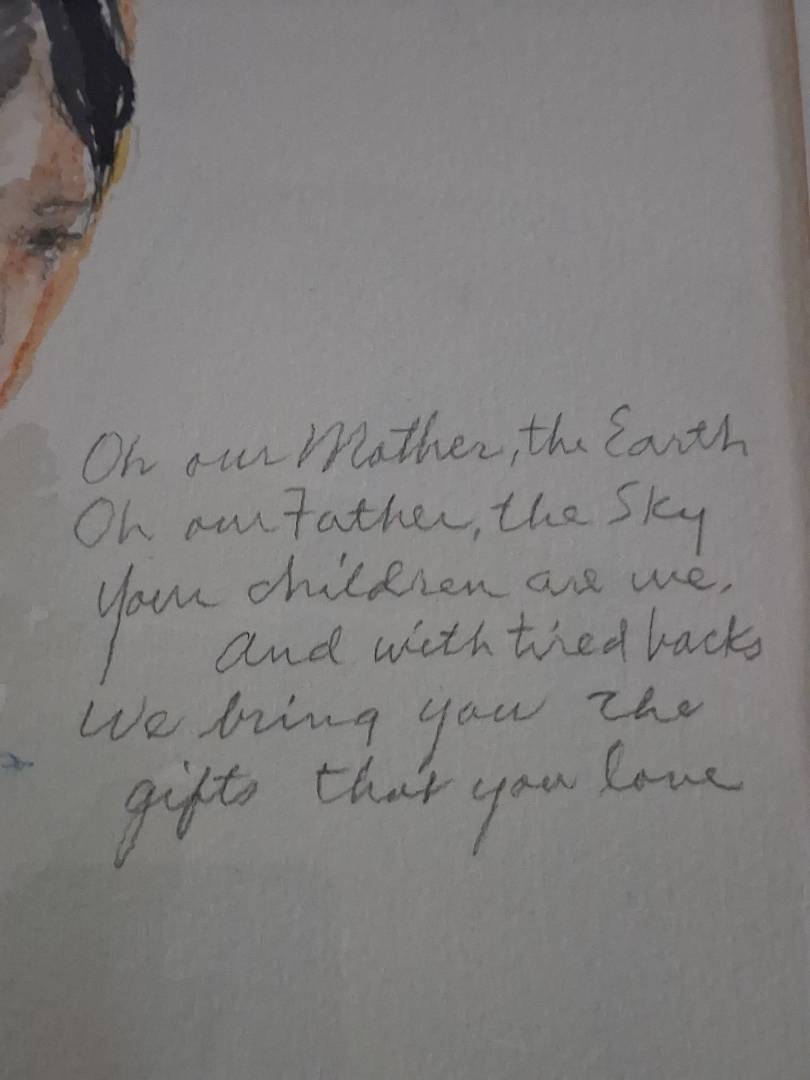 Oh our Mother, the Earth
Oh our Father, the Sky
Your children are we.
and with tired backs
We bring you the
gifts that you love